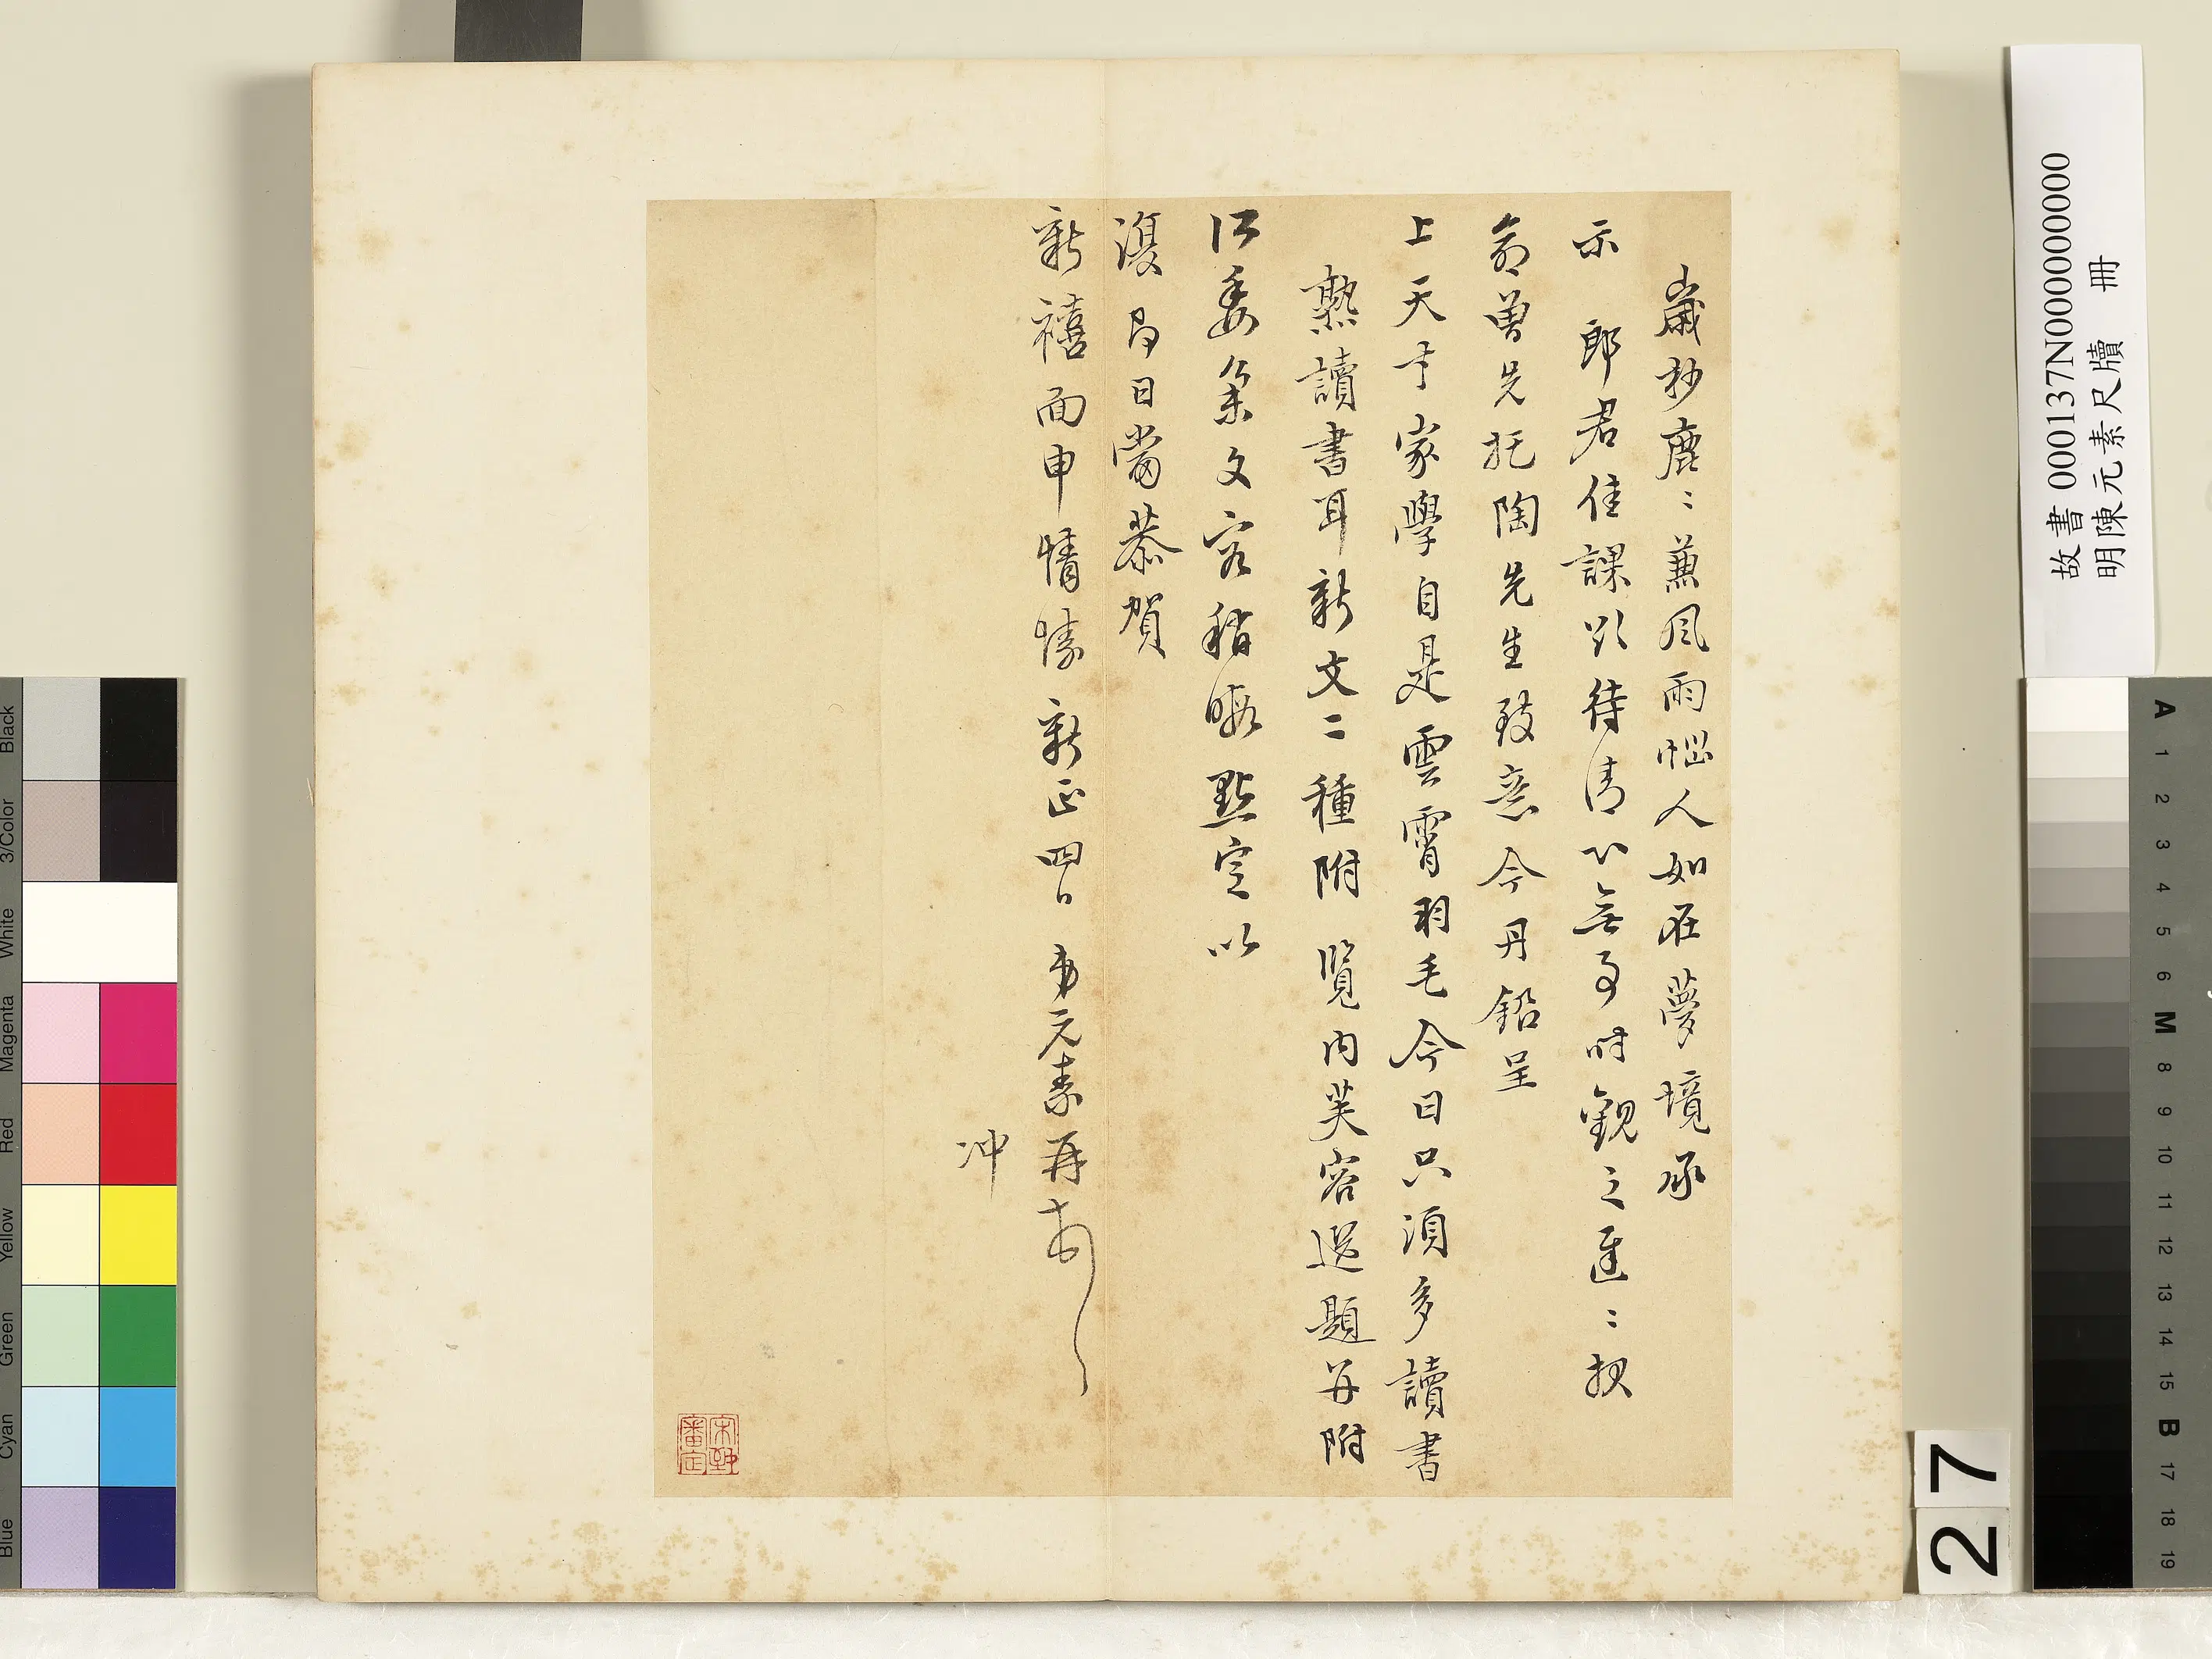 歲抄鹿〻兼風雨惱人如在夢境承
示 郎君佳課欲待清心無事時觀之遲〻揆
翁曾先托陶先生致意今丹鉛呈
上天才家學自是雲霄羽毛今日只須多讀書
熟讀書耳新文二種附 覽內芙容選題并附
所委条文容稍暇點定以
復多日當恭賀
新禧面申情愫 新正四日 弟元素再頓
冲
宋犖審定
故書 000137N000000000
明陳元素尺牘 冊
27
Black
3/Color
White
Magenta
Red
Yellow
Green
Cyan
Blue
A
1
2
3
4
5
6
M
8
9
10
11
12
13
14
15
B
17
18
19